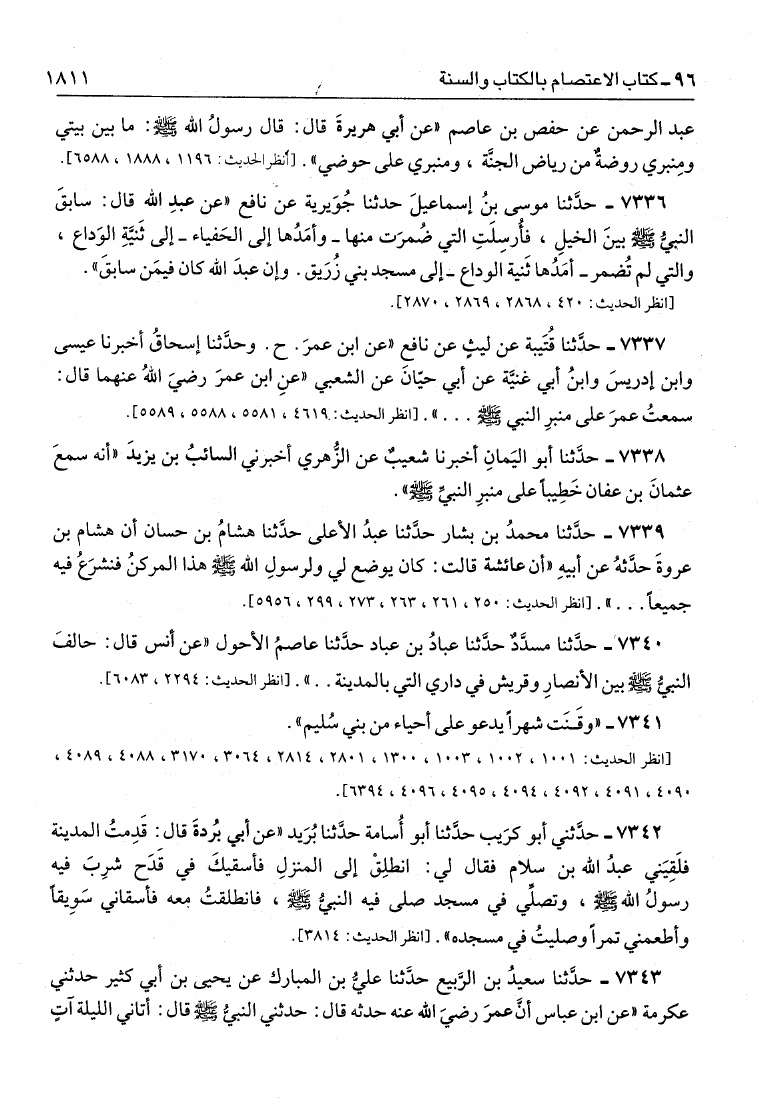 ٩٦ ـ كتاب الاعتصام بالكتاب والسنة ١٨١١
عبد الرحمن عن حفص بن عاصم «عن أبي هريرةَ قال: قال رسولُ الله ﷺ: ما بين بيتي
ومِنبري روضةٌ من رياض الجنَّة ، ومنبري على حوضي». [أنظر الحديث: ١١٩٦ ، ١٨٨٨ ، ٦٥٨٨].
٧٣٣٦ ـ حدَّثنا موسى بنُ إسماعيلَ حدثنا جُوَيرية عن نافع «عن عبدِ الله قال: سابقَ
النبيُّ ﷺ بينَ الخيلِ ، فأُرسِلَتِ التي ضُمرَت منها ـ وأمَدُها إلى الحَفياء ـ إلى ثَنيَّةِ الوَداع ،
والتي لم تُضمر ـ أمَدُها ثَنية الوداع ـ إلى مسجد بني زُرَيق. وإن عبدَ الله كان فيمَن سابقَ».
[انظر الحديث: ٤٢٠ ، ٢٨٦٨ ، ٢٨٦٩ ، ٢٨٧٠].
٧٣٣٧ ـ حدَّثنا قُتَيبة عن ليثٍ عن نافع «عن ابن عمرَ. ح. وحدَّثنا إسحاقُ أخبرنا عيسى
وابن إدريسَ وابنُ أبي غنيَّة عن أبي حيّانَ عن الشعبي «عنِ ابن عمرَ رضيَ اللهُ عنهما قال:
سمعتُ عمرَ على منبرِ النبي ﷺ . . .». [انظر الحديث: ٤٦١٩ ، ٥٥٨١ ، ٥٥٨٨ ، ٥٥٨٩].
٧٣٣٨ ـ حدَّثنا أبو اليَمانِ أخبرنا شعيبٌ عن الزُّهري أخبرني السائبُ بن يزيدَ «أنه سمعَ
عثمانَ بن عفان خَطِيباً على منبرِ النبيِّ ﷺ».
٧٣٣٩ ـ حدَّثنا محمدُ بن بشار حدَّثنا عبدُ الأعلى حدَّثنا هشامُ بن حسان أن هشام بن
عروةَ حدَّثهُ عن أبيهِ «أن عائشة قالت: كان يوضع لي ولرسولِ الله ﷺ هذا المركنُ فنشرَعُ فيه
جميعاً. . .». [انظر الحديث: ٢٥٠ ، ٢٦١ ، ٢٦٣ ، ٢٧٣ ، ٢٩٩ ، ٥٩٥٦].
٧٣٤٠ ـ حدَّثنا مسدَّدٌ حدَّثنا عبادُ بن عباد حدَّثنا عاصمُ الأحول «عن أنس قال: حالفَ
النبيُّ ﷺ بين الأنصارِ وقريش في داري التي بالمدينة . .». [انظر الحديث: ٢٢٩٤ ، ٦٠٨٣].
٧٣٤١ ـ «وقَنَت شهراً يدعو على أحياء من بني سُليم».
[انظر الحديث: ١٠٠١ ، ١٠٠٢ ، ١٠٠٣ ، ١٣٠٠ ، ٢٨٠١ ، ٢٨١٤ ، ٣٠٦٤ ، ٣١٧٠ ، ٤٠٨٨ ، ٤٠٨٩ ،
٤٠٩٠ ، ٤٠٩١ ، ٤٠٩٢ ، ٤٠٩٤ ، ٤٠٩٥ ، ٤٠٩٦ ، ٦٣٩٤].
٧٣٤٢ ـ حدَّثني أبو كرَيب حدَّثنا أبو أُسامة حدَّثنا بُرَيد «عن أبي بُردةَ قال: قَدِمتُ المدينة
فلَقِيَني عبدُ الله بن سلام فقال لي: انطلِقْ إلى المنزلِ فأسقيكَ في قَدَح شرِبَ فيه
رسولُ الله ﷺ ، وتصلِّي في مسجد صلى فيه النبيُّ ﷺ ، فانطلقتُ معه فأسقاني سَوِيقاً
وأطعمني تمراً وصليتُ في مسجده». [انظر الحديث: ٣٨١٤].
٧٣٤٣ ـ حدَّثنا سعيدُ بن الرَّبيع حدَّثنا عليُّ بن المبارك عن يحيى بن أبي كثير حدثني
عكرمة «عن ابن عباس أنَّ عمرَ رضيَ الله عنه حدثه قال: حدثني النبيُّ ﷺ قال: أتاني الليلة آتٍ